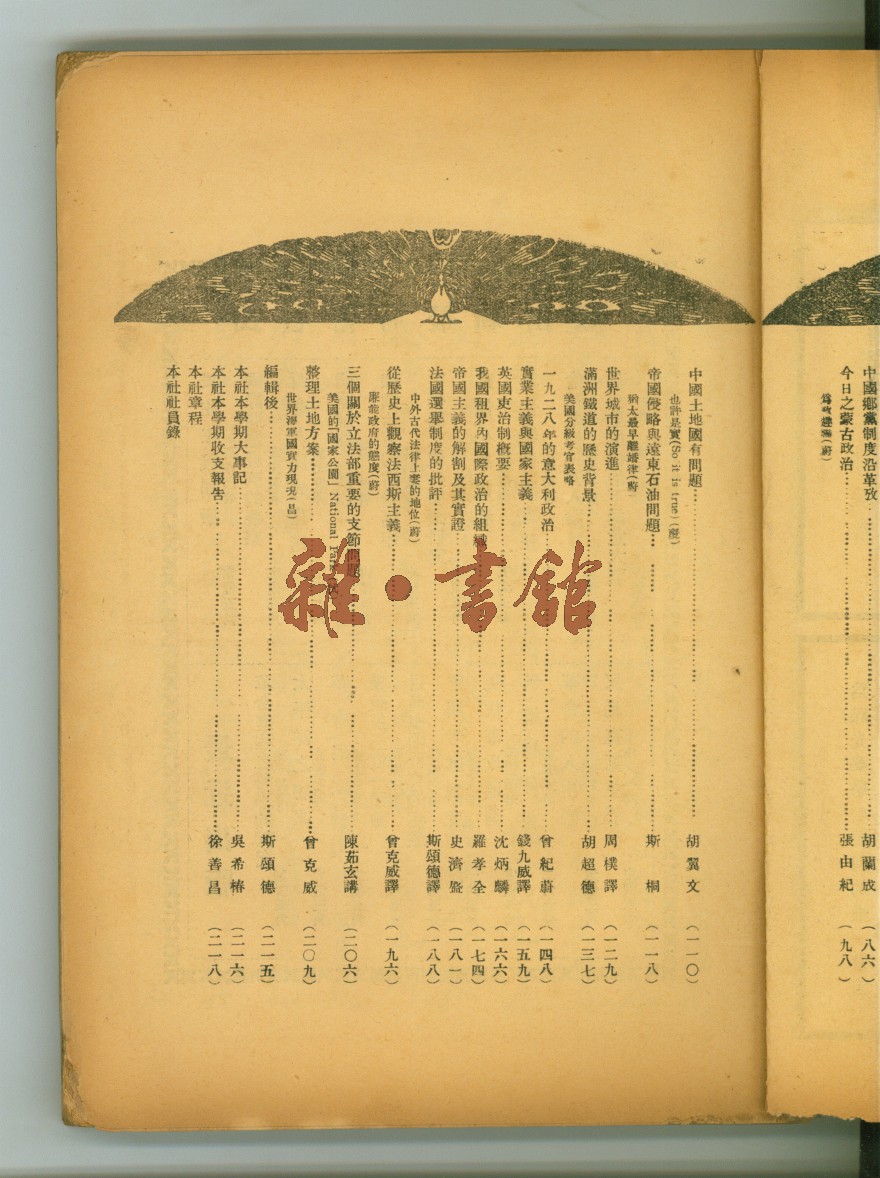 中國鄉黨制度沿革攷 胡蘭成 （八六）
今日之蒙古政治 張由紀 （九八）
中國土地國有問題 胡翼文 （一一〇）
也許是實(So it is true)
帝國侵略與遠東石油問題 斯桐 （一一八）
猶太最早離婚律(蔚)
世界城市的演進 周樸譯 （一二九）
滿洲鐵道的歷史背景 胡超德 （一三七）
美國分級考官表略
一九二八年的意大利政治 曾紀蔚 （一四八）
實業主義與國家主義 錢九威譯 （一五九）
英國吏治制概要 沈炳麟 （一六六）
我國租界內國際政治的組織 羅孝全 （一七四）
帝國主義的解剖及其實證 史濟 （一八一）
法國選舉制度的批評 斯頌德譯 （一八八）
中外古代法律上妻的地位(蔚)
從歷史上觀察法西斯主義 曾克威譯 （一九六）
廉能政府的態度(蔚)
三個關於立法部重要的支節問題 陳茹玄講 （二〇六）
美國的「國家公園」National Park
整理土地方案 曾克威 （二〇九）
世界海軍國實力現況(昌)
編輯後 斯頌德 （二一五）
本社本學期大事記 吳希椿 （二一六）
本社本學期收支報告 徐善昌 （二一八）
本社章程
本社社員錄
雜·書館